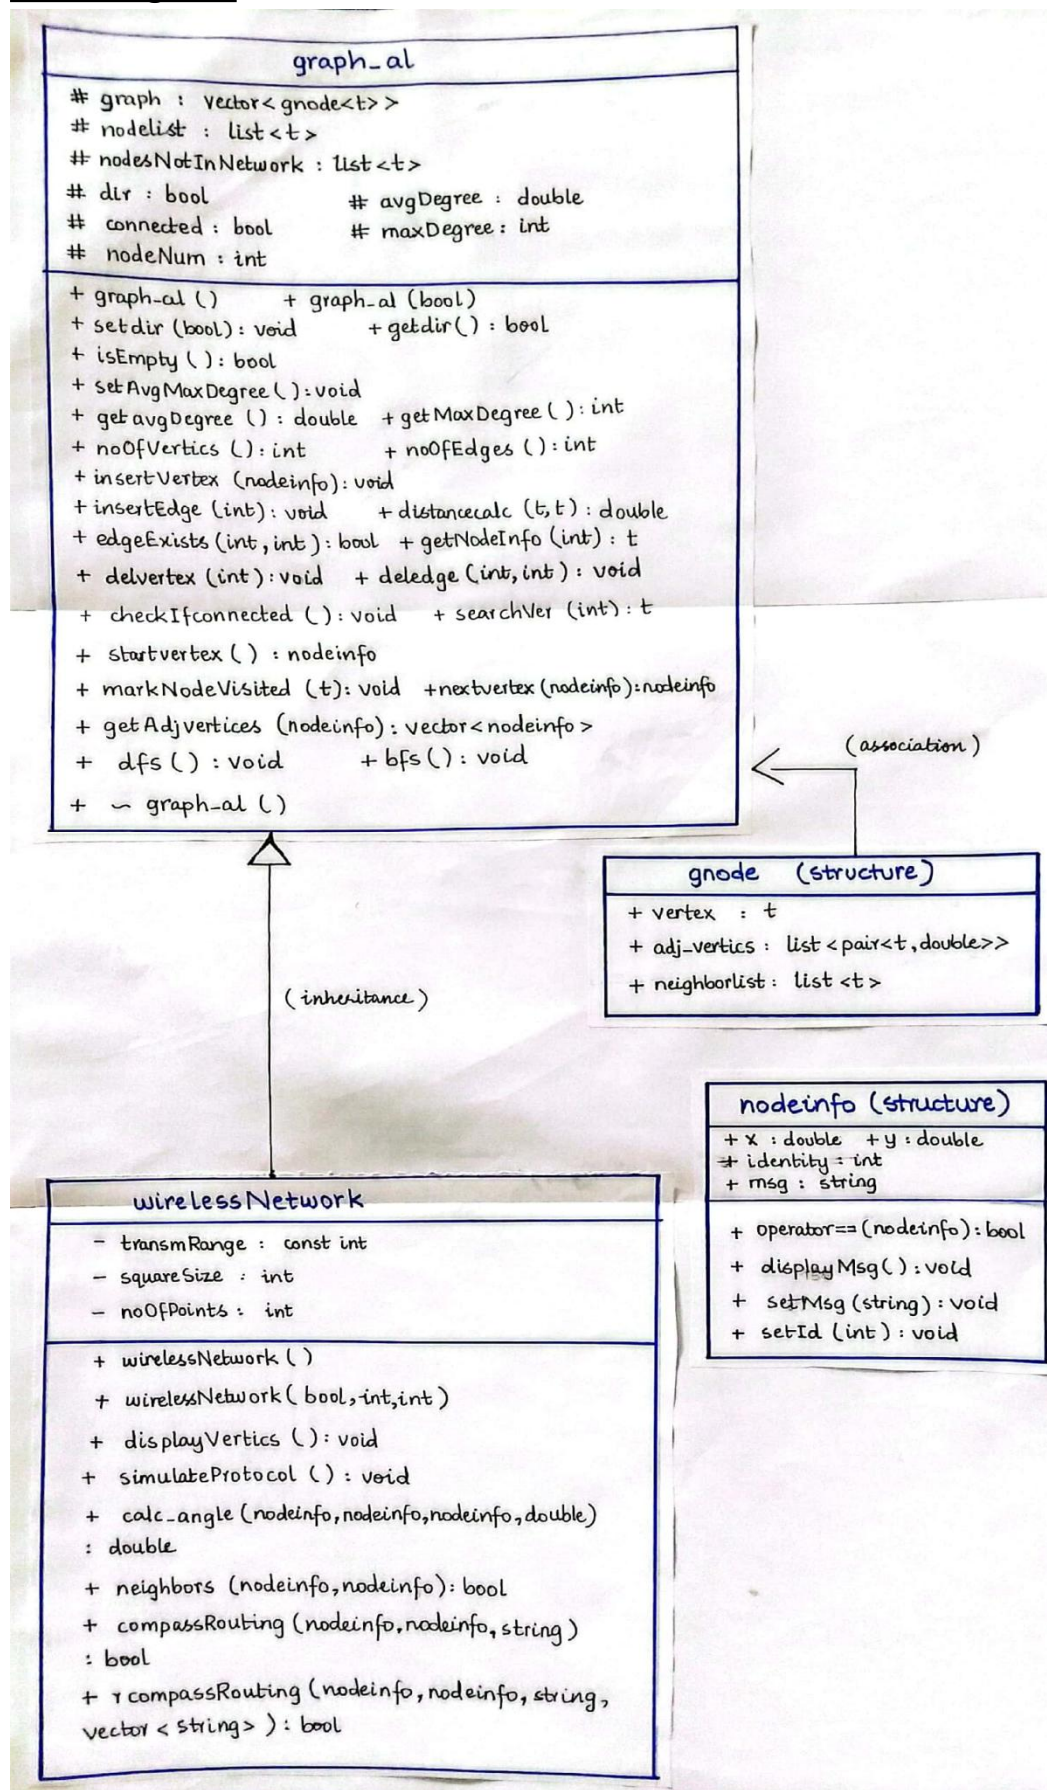 graph_al
# graph : vector<gnode<t>>
# nodelist : list<t>
# nodesNotInNetwork : list<t>
# dir : bool # avgDegree : double
# connected : bool # maxDegree : int
# nodeNum : int
+ graph-al () + graph-al (bool)
+ setdir (bool) : void + getdir() : bool
+ isEmpty () : bool
+ setAvgMaxDegree () : void
+ getavgDegree () : double + getMaxDegree () : int
+ noOfVertics () : int + noOfEdges () : int
+ insertVertex (nodeinfo) : void
+ insertEdge (int) : void + distancecalc (t,t) : double
+ edgeExists (int, int) : bool + getNodeInfo (int) : t
+ delvertex (int) : void + deledge (int, int) : void
+ checkIfconnected () : void + searchVer (int) : t
+ startvertex () : nodeinfo
+ markNodeVisited (t) : void + nextvertex (nodeinfo) : nodeinfo
+ getAdjvertices (nodeinfo) : vector<nodeinfo>
+ dfs () : void + bfs () : void
+ ~ graph-al ()
(association)
gnode (structure)
+ vertex : t
+ adj-vertics : list <pair<t, double>>
+ neighborlist : list <t>
(inheritance)
nodeinfo (structure)
+ x : double + y : double
+ identity : int
+ msg : string
+ operator== (nodeinfo) : bool
+ displayMsg() : void
+ setMsg (string) : void
+ setId (int) : void
wirelessNetwork
- transmRange : const int
- squareSize : int
- noOfPoints : int
+ wirelessNetwork ()
+ wirelessNetwork (bool, int, int)
+ displayVertics () : void
+ simulateProtocol () : void
+ calc-angle (nodeinfo, nodeinfo, nodeinfo, double)
: double
+ neighbors (nodeinfo, nodeinfo) : bool
+ compassRouting (nodeinfo, nodeinfo, string)
: bool
+ rcompassRouting (nodeinfo, nodeinfo, string,
vector < string > ) : bool